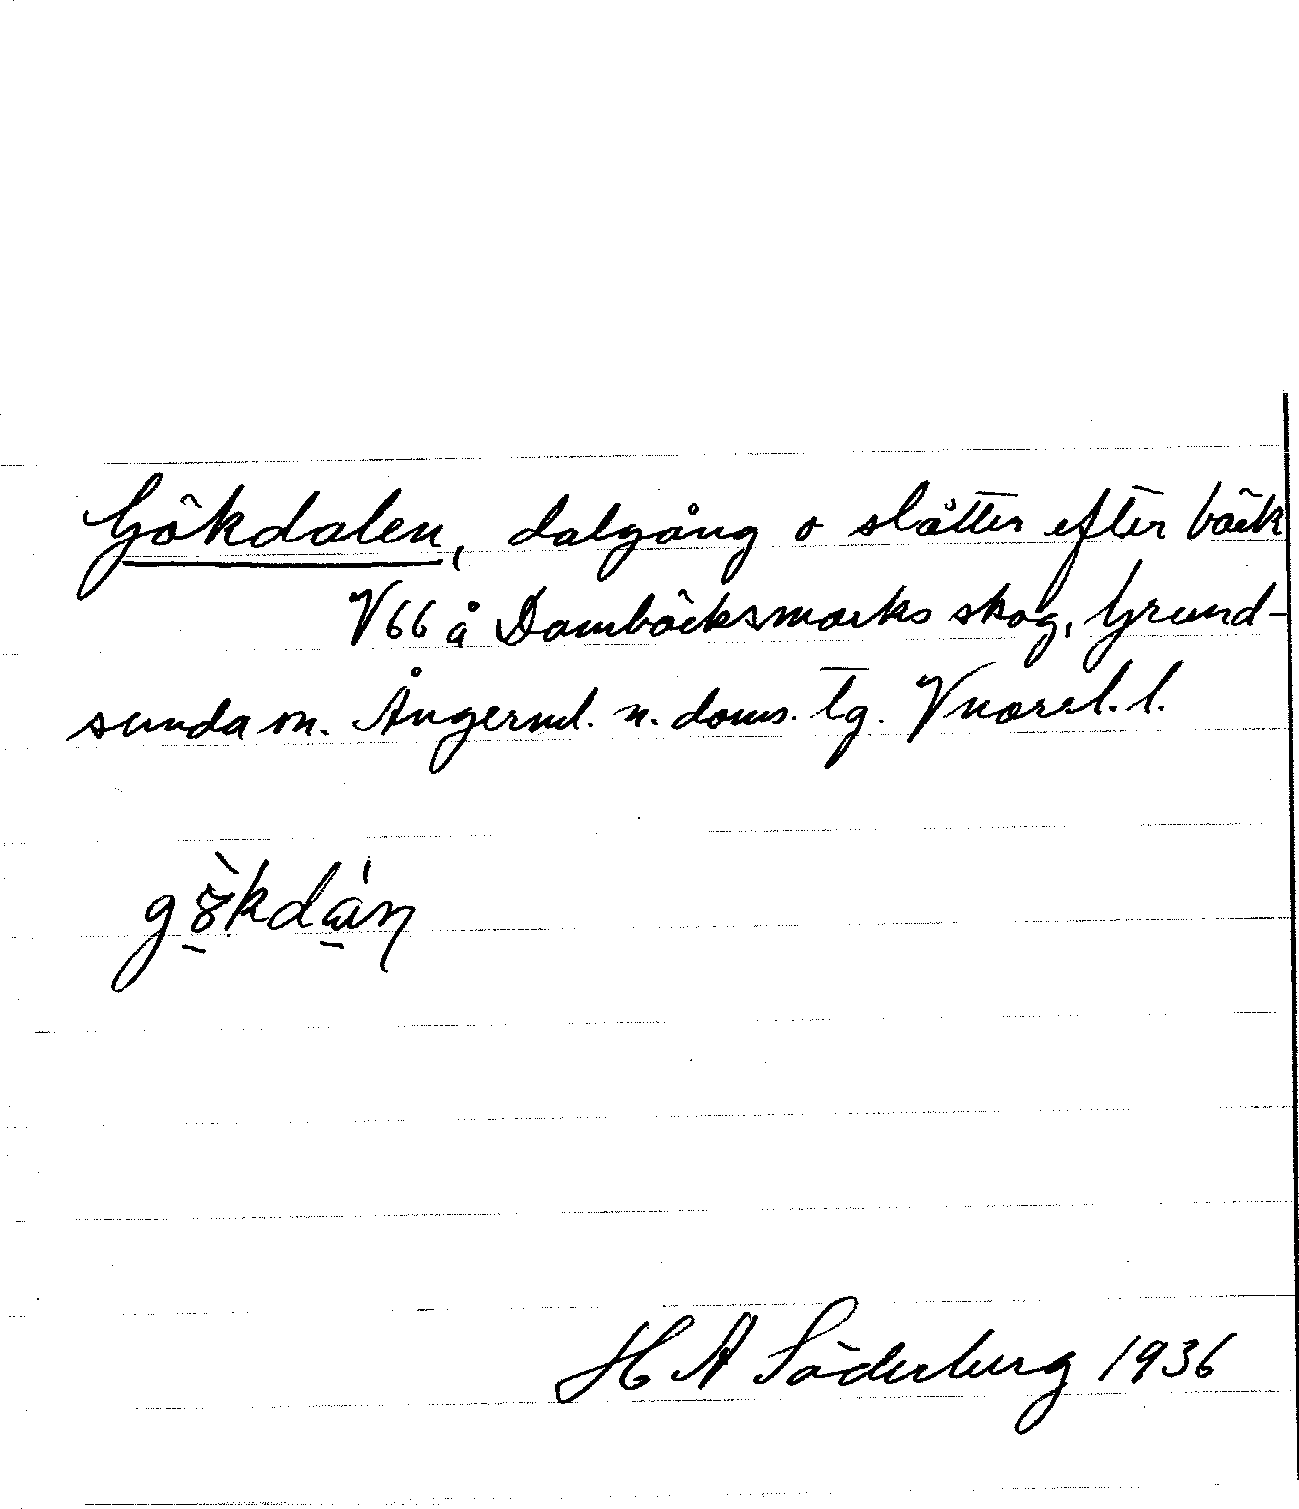 Gökdalen, dalgång o slåtter efter bäck
V66 å Dombäcksmarks skog, Grund-
sunda sn. Ångerml. n. doms. tg. Vnorrl. l.
H A Söderberg 1936